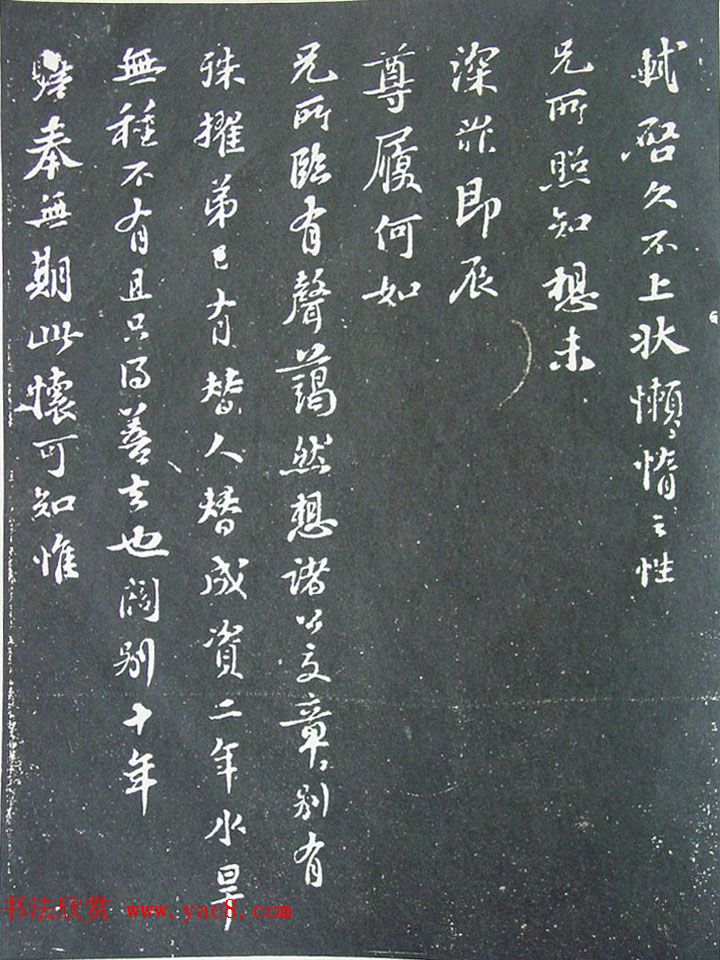 軾啓久不上状懶惰之性
兄所照知想未
深罪即辰
尊履何如
兄所臨有聲藹然想諸公交章別有
殊擢弟已有替人替成資二年水旱
無種不有且只得善去也闊別十年
奉無期此懷可知惟
书法欣赏 www.yac8.com